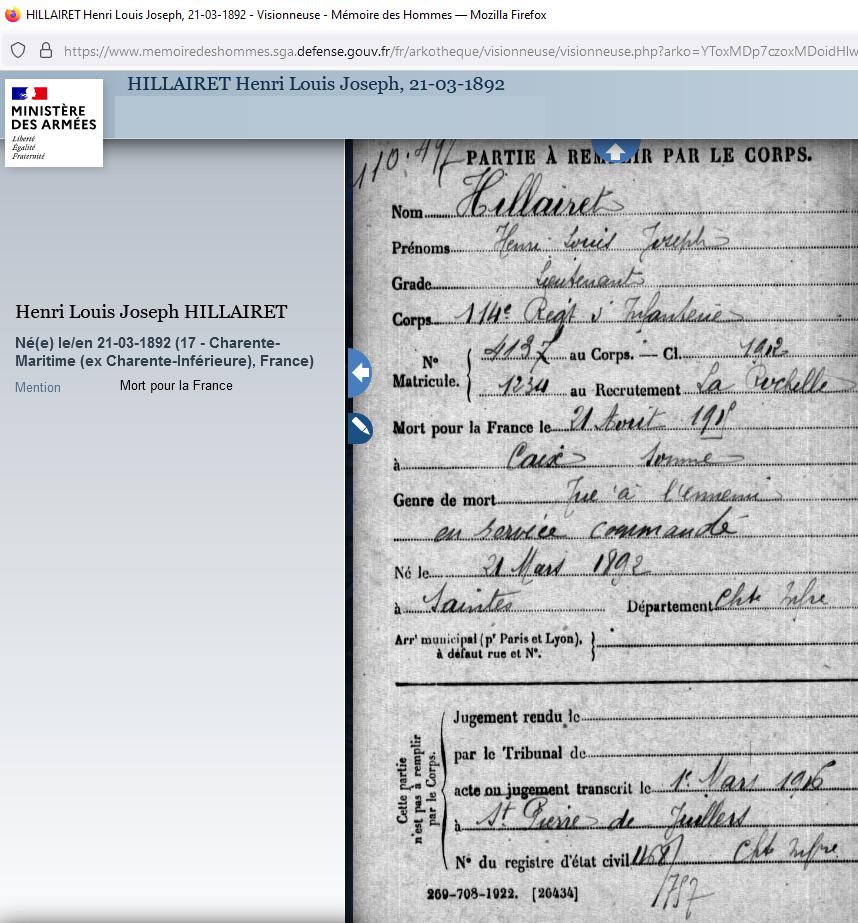 HILLAIRET Henri Louis Joseph, 21-03-1892 - Visionneuse - Mémoire des Hommes — Mozilla Firefox
https://www.memoiredeshommes.sga.defense.gouv.fr/fr/arkotheque/visionneuse/visionneuse.php?arko=YToxMDp7czoxMDoidHlw
HILLAIRET Henri Louis Joseph, 21-03-1892
MINISTÈRE
DES ARMÉES
Liberté
Égalité
Fraternité
Henri Louis Joseph HILLAIRET
Né(e) le/en 21-03-1892 (17 - Charente-
Maritime (ex Charente-Inférieure), France)
Mention Mort pour la France
110.497 PARTIE À REMPLIR PAR LE CORPS.
Nom Hillairet
Prénoms Henri Louis Joseph
Grade Lieutenant
Corps 114e Regt d'Infanterie
N° Matricule. 4137 au Corps. — Cl. 1912
1234 au Recrutement La Rochelle
Mort pour la France le 21 Août 1915
à Caix Somme
Genre de mort Tué à l'ennemi
en service commandé
Né le 21 Mars 1892
à Saintes Département Chte Infre
Arrt municipal (pr Paris et Lyon),
à défaut rue et N°.
Cette partie
n'est pas à remplir
par le Corps.
Jugement rendu le
par le Tribunal de
acte ou jugement transcrit le 1er Mars 1916
à St Pierre de Juillers
N° du registre d'état civil Chte Infre
269-708-1922. [26434]
/757